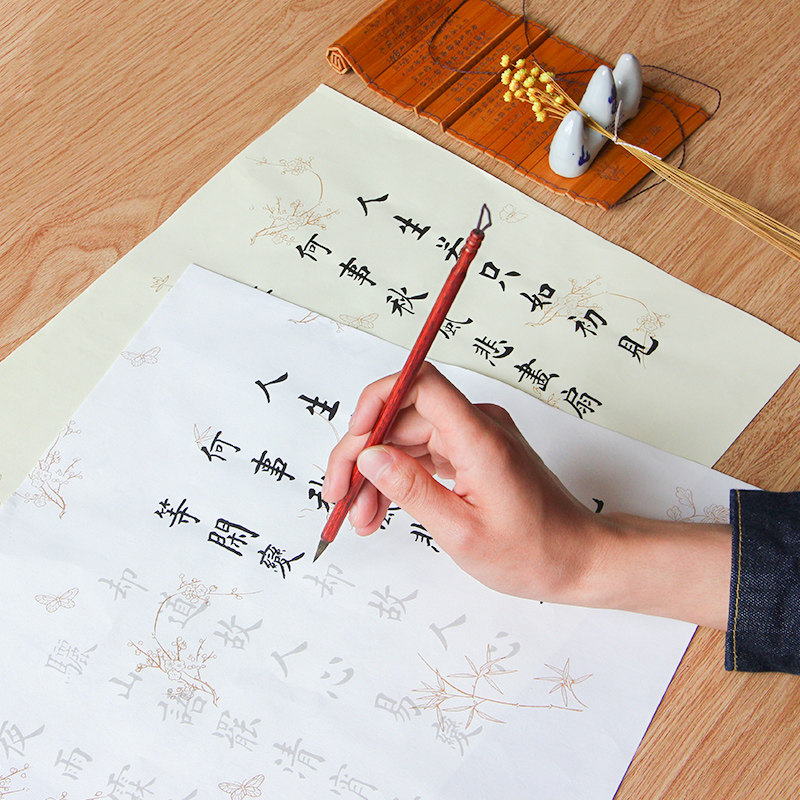 人生若只如初見
何事秋風悲畫扇
人生
何事秋風悲
等閑變却故人心
却道故人心易變
驪山語罷清宵
夜雨霖